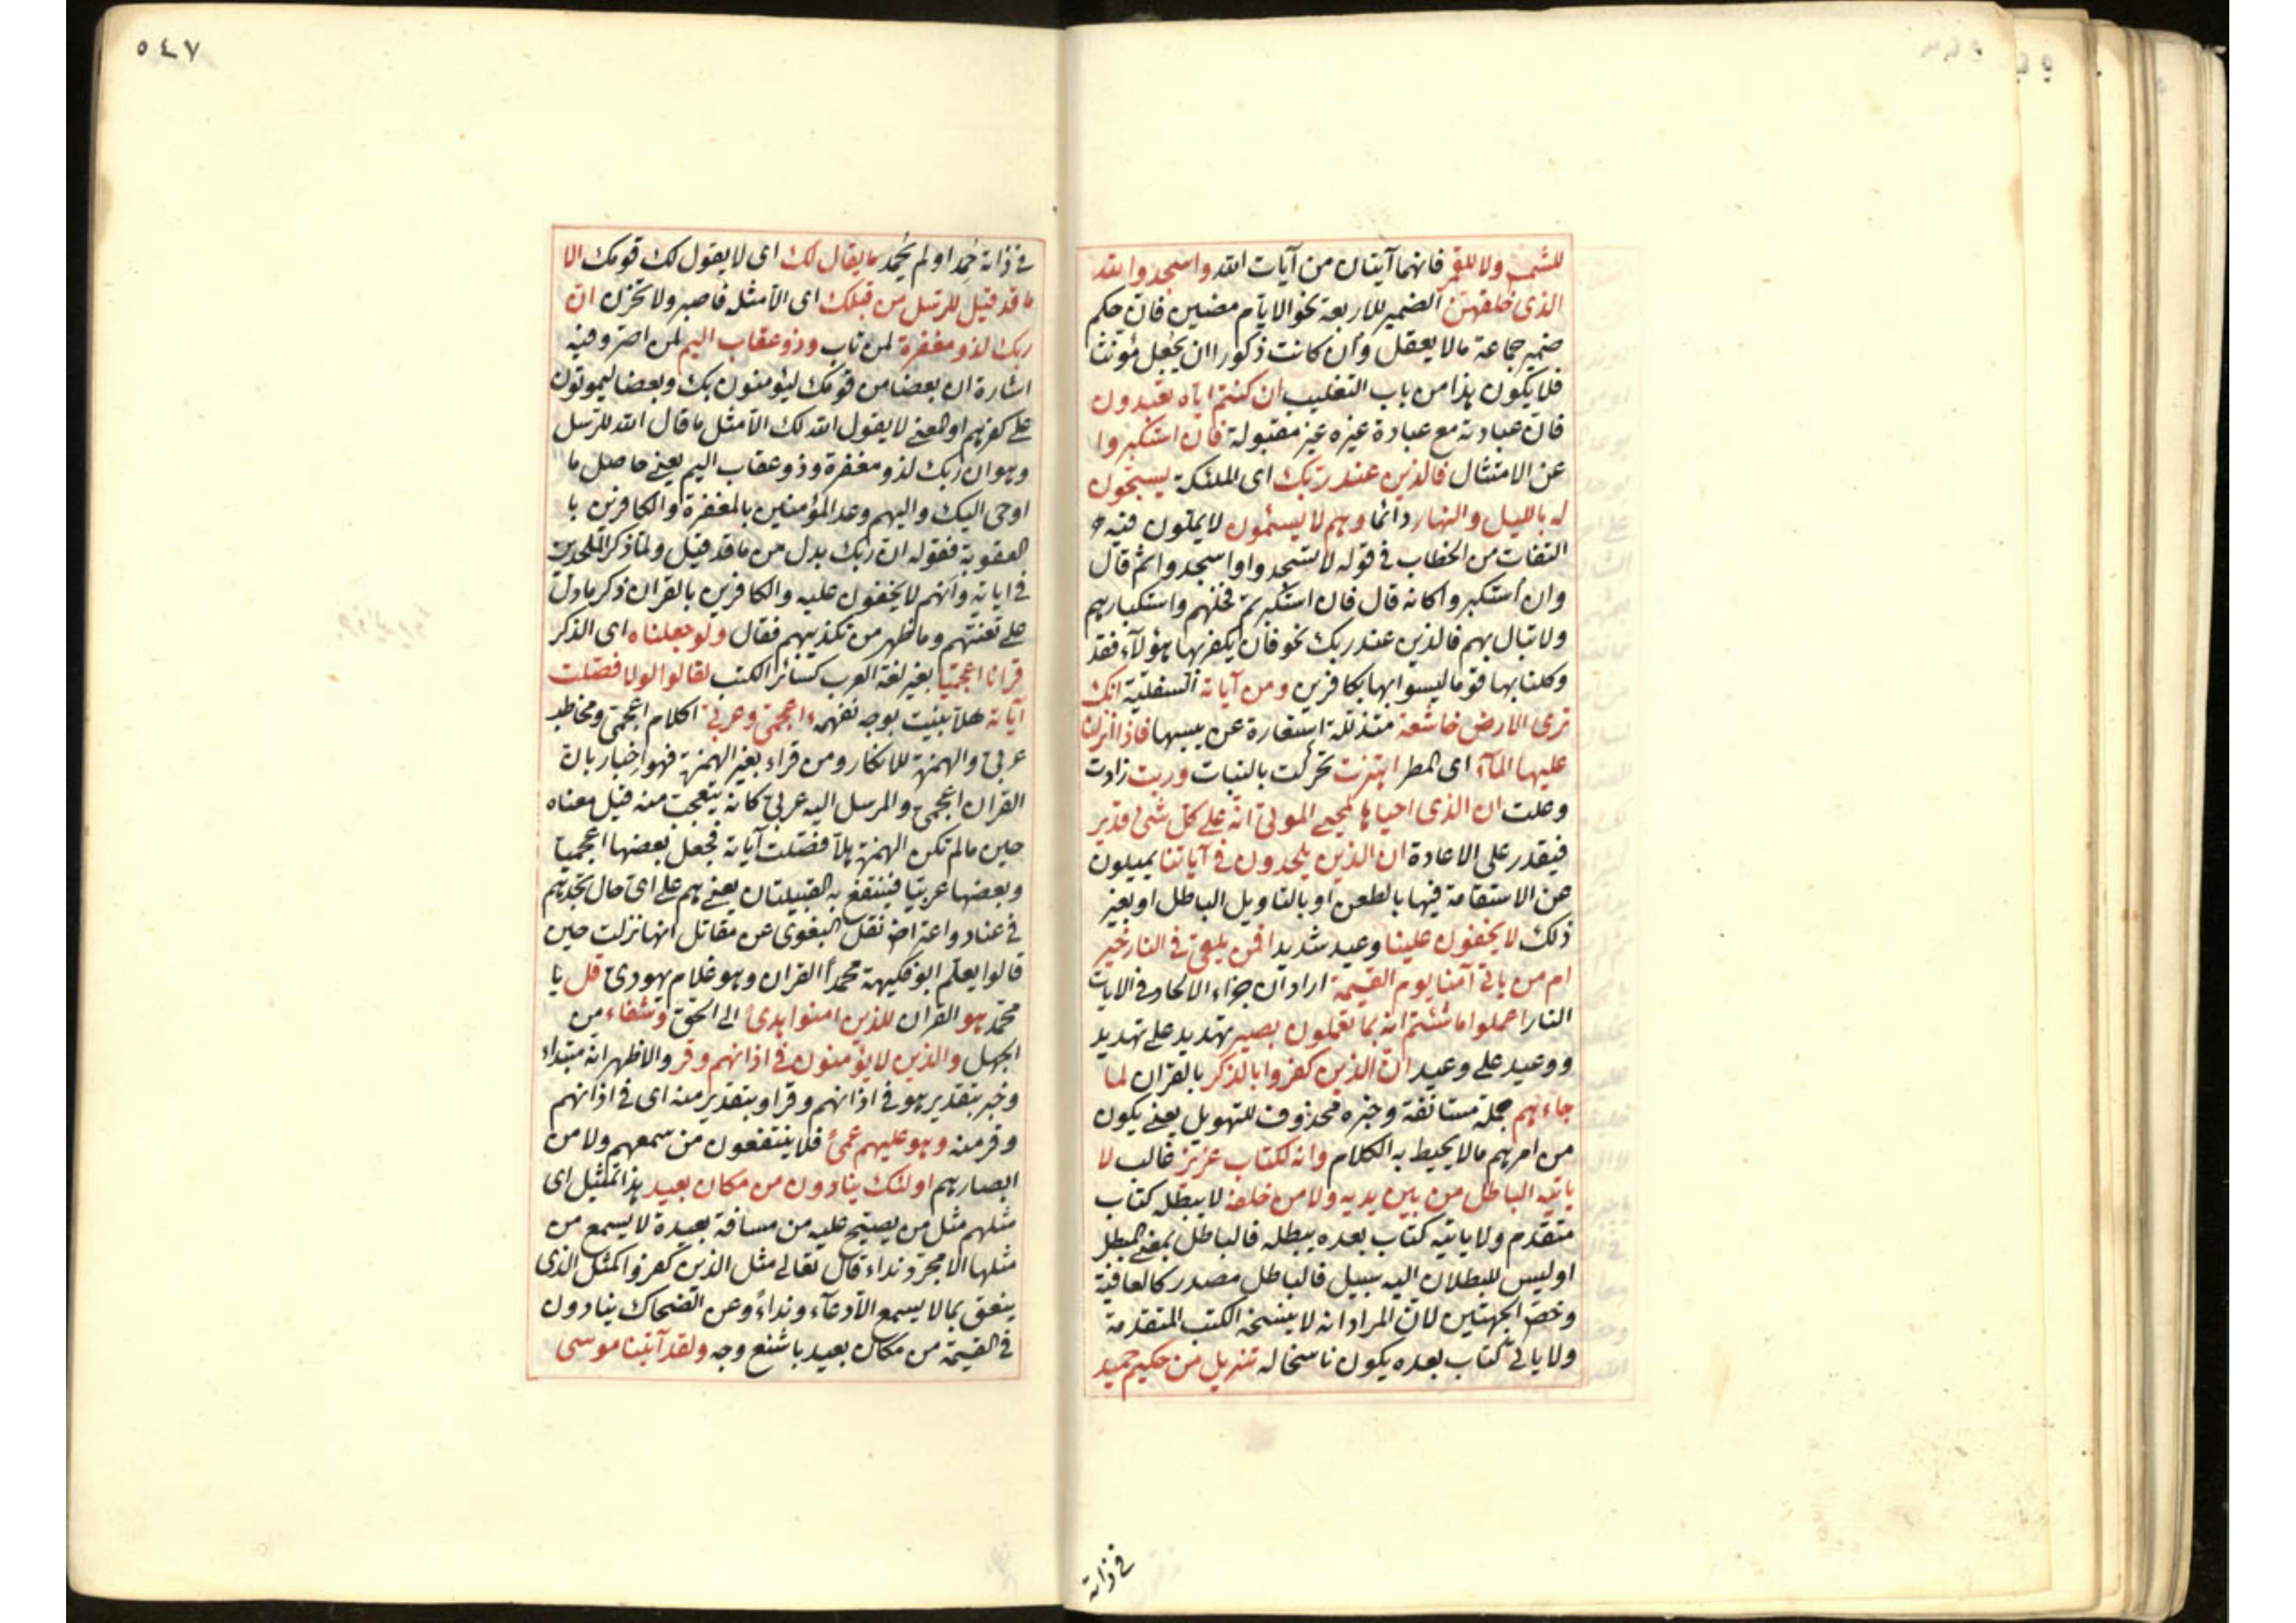 للشمس ولا للقمر فانهما آيتان من آيات الله واسجدوا لله
الذى خلقهن الضمير للاربعة نحو الايام مضين فان حكم
ضمير جماعة مالا يعقل وان كانت ذكورا ان يجعل مؤنثا
فلا يكون هذا من باب التغليب ان كنتم اياه تعبدون
فان عبادته مع عبادة غيره غير مقبولة فان استكبروا
عن الامتثال فالذين عند ربك اى الملئكة يسبحون
له بالليل والنهار دائما وهم لا يسئمون لا يملون فيه
التفات من الخطاب فى قوله لا تسجدوا واسجدوا ثم قال
وان استكبروا كانه قال فان استكبرتم فخلهم واستكبارهم
ولا تبال بهم فالذين عند ربك نحو فان يكفر بها هؤلآء فقد
وكلنا بها قوما ليسوا بها بكافرين ومن آياته السفلية انك
ترى الارض خاشعة متذللة استعارة عن يبسها فاذا انزلنا
عليها المآء اى المطر اهتزت تحركت بالنبات وربت زادت
وعلت ان الذى احياها لمحيى الموتى انه على كل شئ قدير
فيقدر على الاعادة ان الذين يلحدون فى آياتنا يميلون
عن الاستقامة فيها بالطعن او بالتاويل الباطل او بغير
ذلك لا يخفون علينا وعيد شديد افمن يلقى فى النار خير
ام من ياتى آمنا يوم القيمة اراد ان جزاء الالحاد فى الايات
النار اعملوا ما شئتم انه بما تعملون بصير تهديد على تهديد
ووعيد على وعيد ان الذين كفروا بالذكر بالقران لما
جاءهم جملة مستانفة وخبره محذوف للتهويل يعنى يكون
من امرهم مالا يحيط به الكلام وانه لكتاب عزيز غالب لا
ياتيه الباطل من بين يديه ولا من خلفه لا يبطله كتاب
متقدم ولا ياتيه كتاب بعده يبطله فالباطل بمعنى المبطل
او ليس للبطلان اليه سبيل فالباطل مصدر كالعافية
وخص الجهتين لان المراد انه لا ينسخه الكتب المتقدمة
ولا ياتى كتاب بعده يكون ناسخا له تنزيل من حكيم حميد
فى ذاته
٥٤٧
فى ذاته حُمِد او لم يُحمد ما يقال لك اى لا يقول لك قومك الا
ما قد قيل للرسل من قبلك اى الا مثله فاصبر ولا تحزن ان
ربك لذو مغفرة لمن تاب وذو عقاب اليم لمن اصر وفيه
اشارة ان بعضا من قومك ليؤمنون بك وبعضا ليموتون
على كفرهم او المعنى لا يقول الله لك الا مثل ما قال الله للرسل
وهو ان ربك لذو مغفرة وذو عقاب اليم يعنى حاصل ما
اوحى اليك واليهم وعد المؤمنين بالمغفرة والكافرين با
لعقوبة فقوله ان ربك بدل من ما قد قيل ولما ذكر الملحدين
فى اياته وانهم لا يخفون عليه والكافرين بالقران ذكر ما دل
على تعنتهم وما ظهر من تكذيبهم فقال ولو جعلناه اى الذكر
قرانا اعجميا بغير لغة العرب كسائر الكتب لقالوا لولا فصلت
آياته هلا بينت بوجه نفهمه ءاعجمى وعربى اكلام اعجمى ومخاطب
عربى والهمزة للانكار ومن قراء بغير الهمزة فهو اخبار بان
القران اعجمى والمرسل اليه عربى كانه يتعجب منه قيل معناه
حين مالم تكن الهمزة هلا فصلت آياته فجعل بعضها اعجميا
وبعضها عربيا فينتفع به القبيلتان يعنى هم على اى حال تجدهم
فى عناد واعتراض نقل البغوى عن مقاتل انها نزلت حين
قالوا يعلم ابو فكيهة محمداً القران وهو غلام يهودى قل يا
محمد هو القران للذين امنوا هدى الى الحق وشفاء من
الجهل والذين لا يؤمنون فى اذانهم وقر والاظهر انه مبتداء
وخبر بتقدير هو فى اذانهم وقر او بتقدير منه اى فى اذانهم
وقر منه وهو عليهم عمى فلا ينتفعون من سمعهم ولا من
ابصارهم اولئك ينادون من مكان بعيد هذا تمثيل اى
مثلهم مثل من يصيح عليه من مسافة بعيدة لا يسمع من
مثلها الا مجرد نداء قال تعالى مثل الذين كفروا كمثل الذى
ينعق بما لا يسمع الا دعآء ونداءً وعن الضحاك ينادون
فى القيمة من مكان بعيد باشنع وجه ولقد آتينا موسى